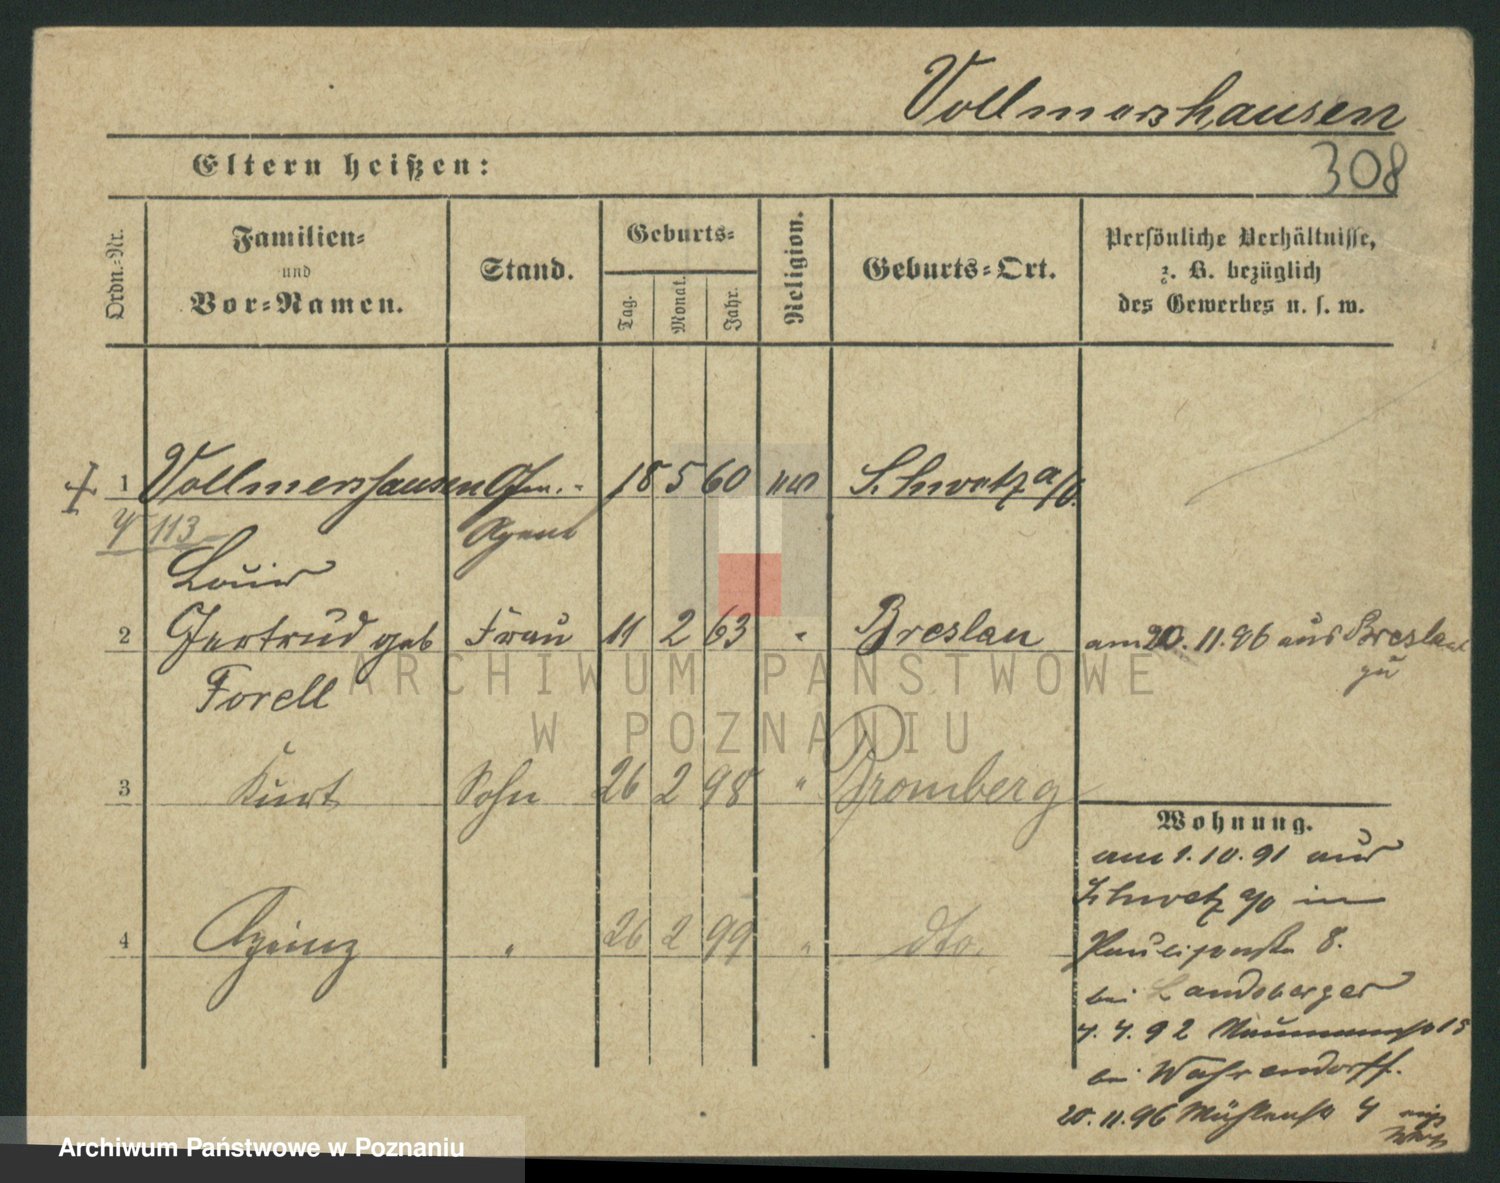 Vollmershausen
308
Eltern heißen:
Ordn.-Nr.
Familien-
und
Vor-Namen.
Stand.
Geburts-
Tag.
Monat.
Jahr.
Religion.
Geburts-Ort.
Persönliche Verhältnisse,
z. B. bezüglich
des Gewerbes u. s. w.
1 Vollmershausen Gen.- 18 5 60 Schwetz a/
4 113 Agent
Louis
2 Gertrud geb Frau 11 2 63 " Breslau am 20.11.96 aus Breslau
Forell zu
3 Kurt Sohn 26 2 98 " Bromberg
4 " 26 2 99 " dto.
Wohnung.
am 1.10.91 aus
Schwetz a/ in
8.
bei Landsberger
4.4.92 15
bei Wahrendorff.
20.11.96 Mühlenstr 4
ARCHIWUM PAŃSTWOWE
W POZNANIU
Archiwum Państwowe w Poznaniu